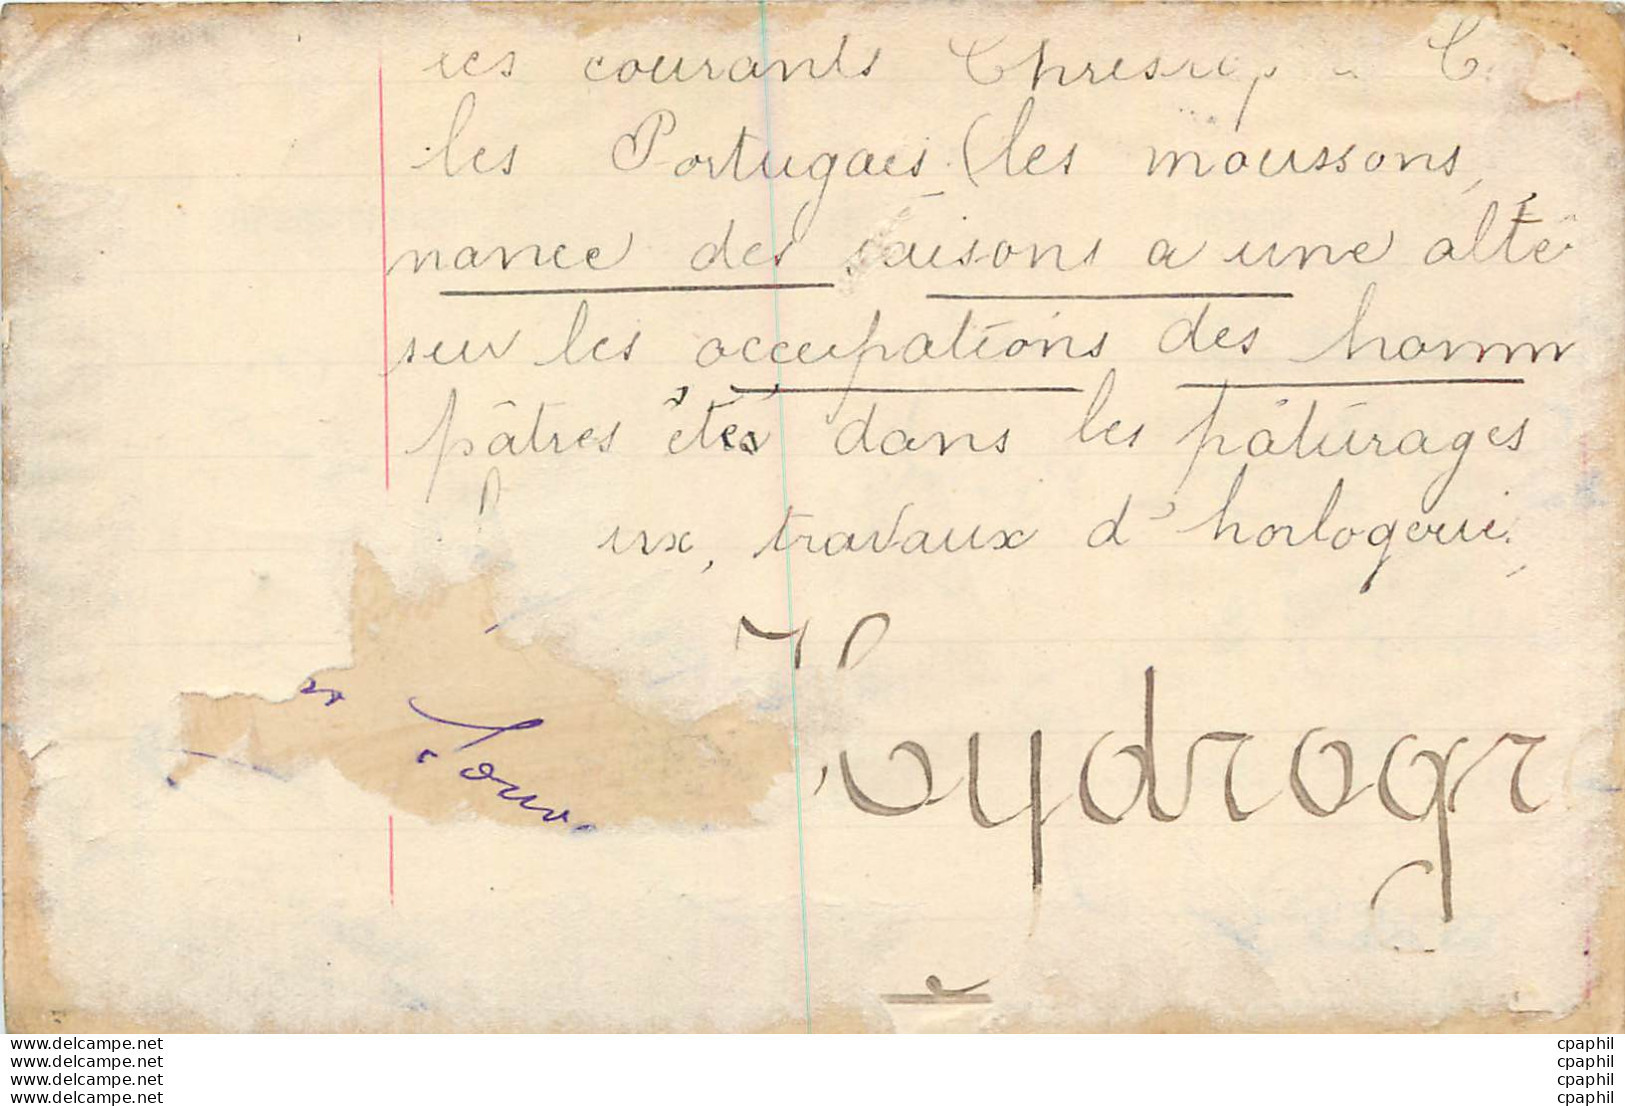 les courants
les Portugais (les moussons,
nance des saisons a une alté
sur les occupations des homm
pâtres étés dans les pâturages
ux, travaux d'horlogerie,
Hydrogr
www.delcampe.net cpaphil
www.delcampe.net cpaphil
www.delcampe.net cpaphil
www.delcampe.net cpaphil